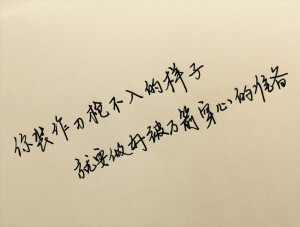 你装作刀枪不入的样子
就要做好被万箭穿心的准备